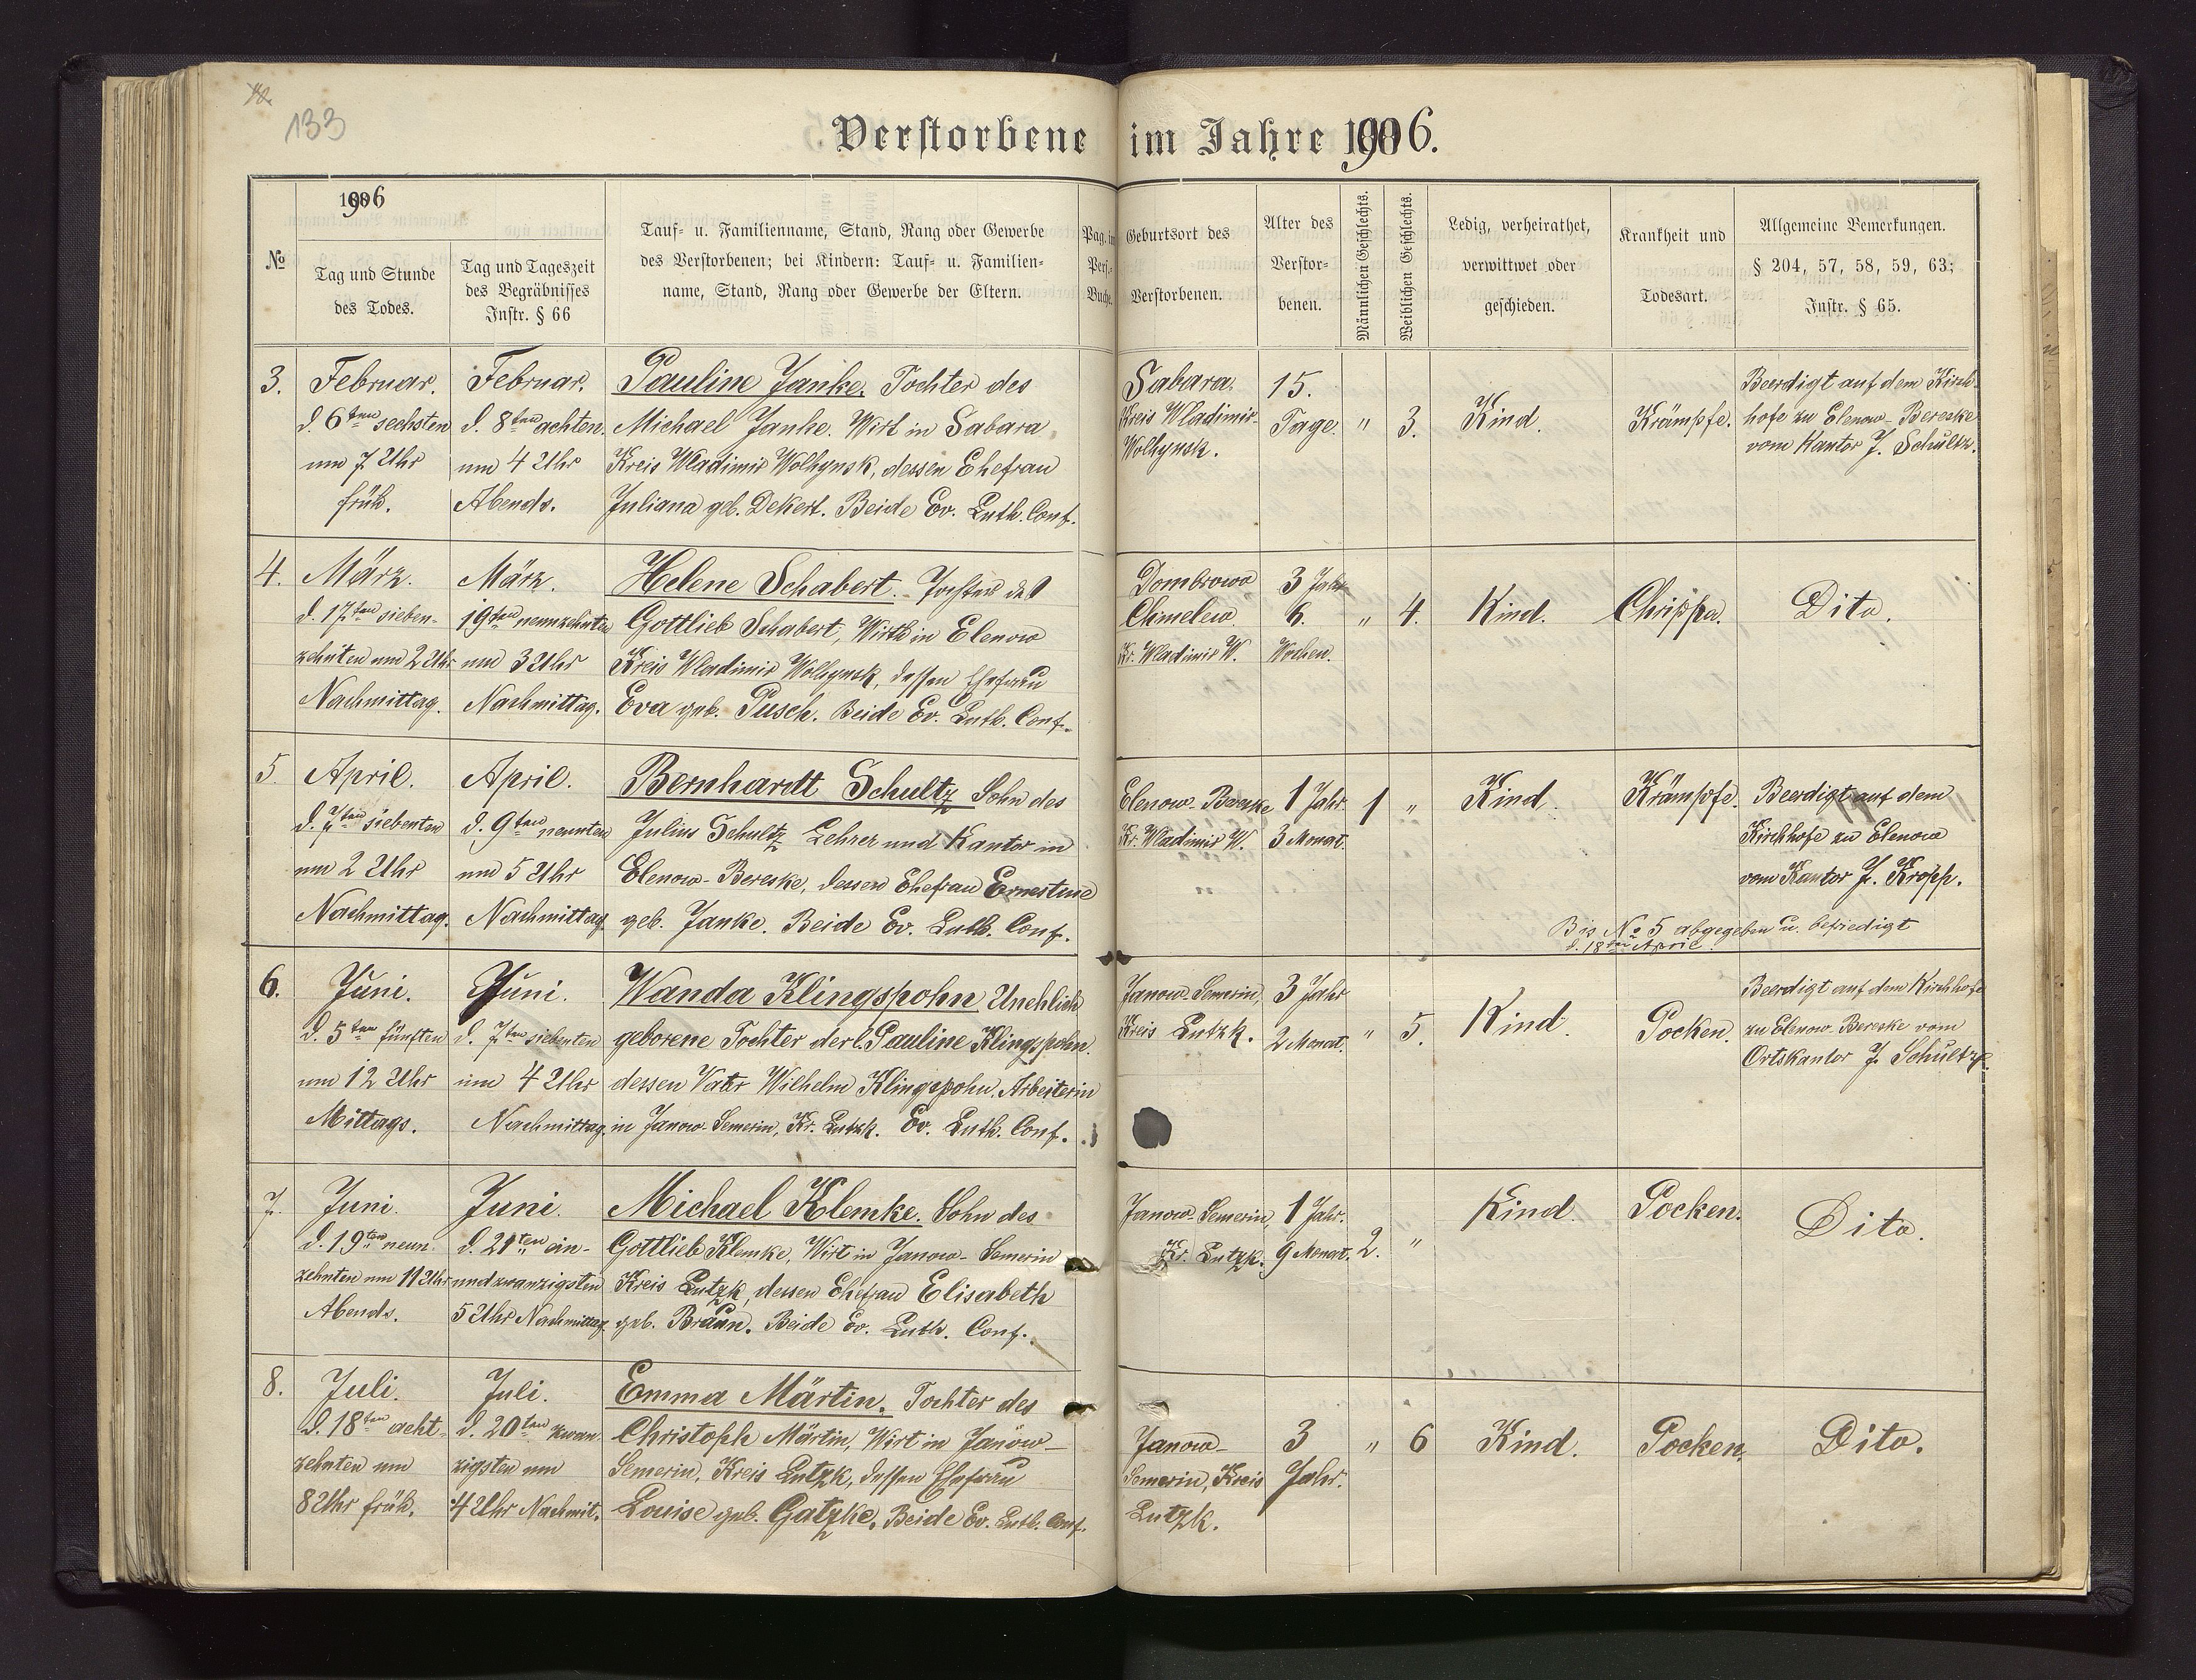 133
Verstorbene im Jahre 1906.
1906
№
Tag und Stunde
des Todes.
Tag und Tageszeit
des Begräbnisses
Instr. § 66
Tauf- u. Familienname, Stand, Rang oder Gewerbe
des Verstorbenen; bei Kindern: Tauf- u. Familien-
name, Stand, Rang oder Gewerbe der Eltern.
Pag. im
Pers.-
Buche.
Geburtsort des
Verstorbenen.
Alter des
Verstor-
benen.
Männlichen Geschlechts.
Weiblichen Geschlechts.
Ledig, verheirathet,
verwittwet oder
geschieden.
Krankheit und
Todesart.
Allgemeine Bemerkungen.
§ 204, 57, 58, 59, 63;
Instr. § 65.
3.
Februar.
d. 6ten sechsten
um 7 Uhr
früh.
Februar.
d. 8ten achten.
um 4 Uhr
Abends.
Pauline Janke. Tochter des
Michael Janke. Wirt in Sabara
Kreis Wladimir Wolhynsk, dessen Ehefrau
Juliana geb. Dekert. Beide Ev. Luth. Conf.
Sabara.
Kreis Wladimir-
Wolhynsk.
15.
Tage.
"
3.
Kind.
Krämpfe.
Beerdigt auf dem Kirch-
hofe zu Elenow-Bereske
vom Kantor J. Schultz.
4.
März.
d. 17ten sieben-
zehnten um 2 Uhr
Nachmittag.
März.
19ten neunzehnten
um 3 Uhr
Nachmittag.
Helene Schabert. Tochter des
Gottlieb Schabert, Wirth in Elenow
Kreis Wladimir Wolhynsk, dessen Ehefrau
Eva geb. Pusch. Beide Ev. Luth. Conf.
Dombrowa
Chmelew.
Kr. Wladimir W.
3 Jahr
6.
Wochen.
"
4.
Kind.
Chrippa.
Dito.
5.
April.
d. 7ten siebenten
um 2 Uhr
Nachmittag.
April.
d. 9ten neunten
um 5 Uhr
Nachmittag.
Bernhardt Schultz Sohn des
Julius Schultz Lehrer und Kantor in
Elenow-Bereske, dessen Ehefrau Ernestine
geb. Janke. Beide Ev. Luth. Conf.
Elenow-Bereske
Kr. Wladimir W.
1 Jahr
3 Monat.
1
"
Kind.
Krämpfe.
Beerdigt auf dem
Kirchhofe zu Elenow
vom Kantor F. Kropp.
Bis No 5 abgegeben u. befriedigt
d. 18ten April.
6.
Juni.
d. 5ten fünften
um 12 Uhr
Mittags.
Juni.
d. 7ten siebenten
um 4 Uhr
Nachmittag.
Wanda Klingspohn Unehlich
geborene Tochter der l. Pauline Klingspohn.
dessen Vater Wilhelm Klingspohn. Arbeiterin
in Janow-Semerin, Kr. Lutzk. Ev. Luth. Conf.
Janow-Semerin,
Kreis Lutzk.
3 Jahr
2 Monat.
"
5.
Kind.
Pocken.
Beerdigt auf dem Kirchhofe
zu Elenow-Bereske vom
Ortskantor J. Schultz.
7.
Juni.
d. 19ten neun-
zehnten um 11 Uhr
Abends.
Juni.
d. 21ten ein-
undzwanzigsten
5 Uhr Nachmittag.
Michael Klemke. Sohn des
Gottlieb Klemke, Wirt in Janow-Semerin
Kreis Lutzk, dessen Ehefrau Elisabeth
geb. Braun. Beide Ev. Luth. Conf.
Janow-Semerin,
Kr. Lutzk.
1 Jahr.
9 Monat.
2.
"
Kind.
Pocken.
Dito.
8.
Juli.
d. 18ten acht-
zehnten um
8 Uhr früh.
Juli.
d. 20ten zwan-
zigsten um
4 Uhr Nachmit.
Emma Märtin. Tochter des
Christoph Märtin, Wirt in Janow-
Semerin, Kreis Lutzk, dessen Ehefrau
Louise geb. Gatzke. Beide Ev. Luth. Conf.
Janow-
Semerin, Kreis
Lutzk.
3
Jahr.
"
6
Kind.
Pocken.
Dito.